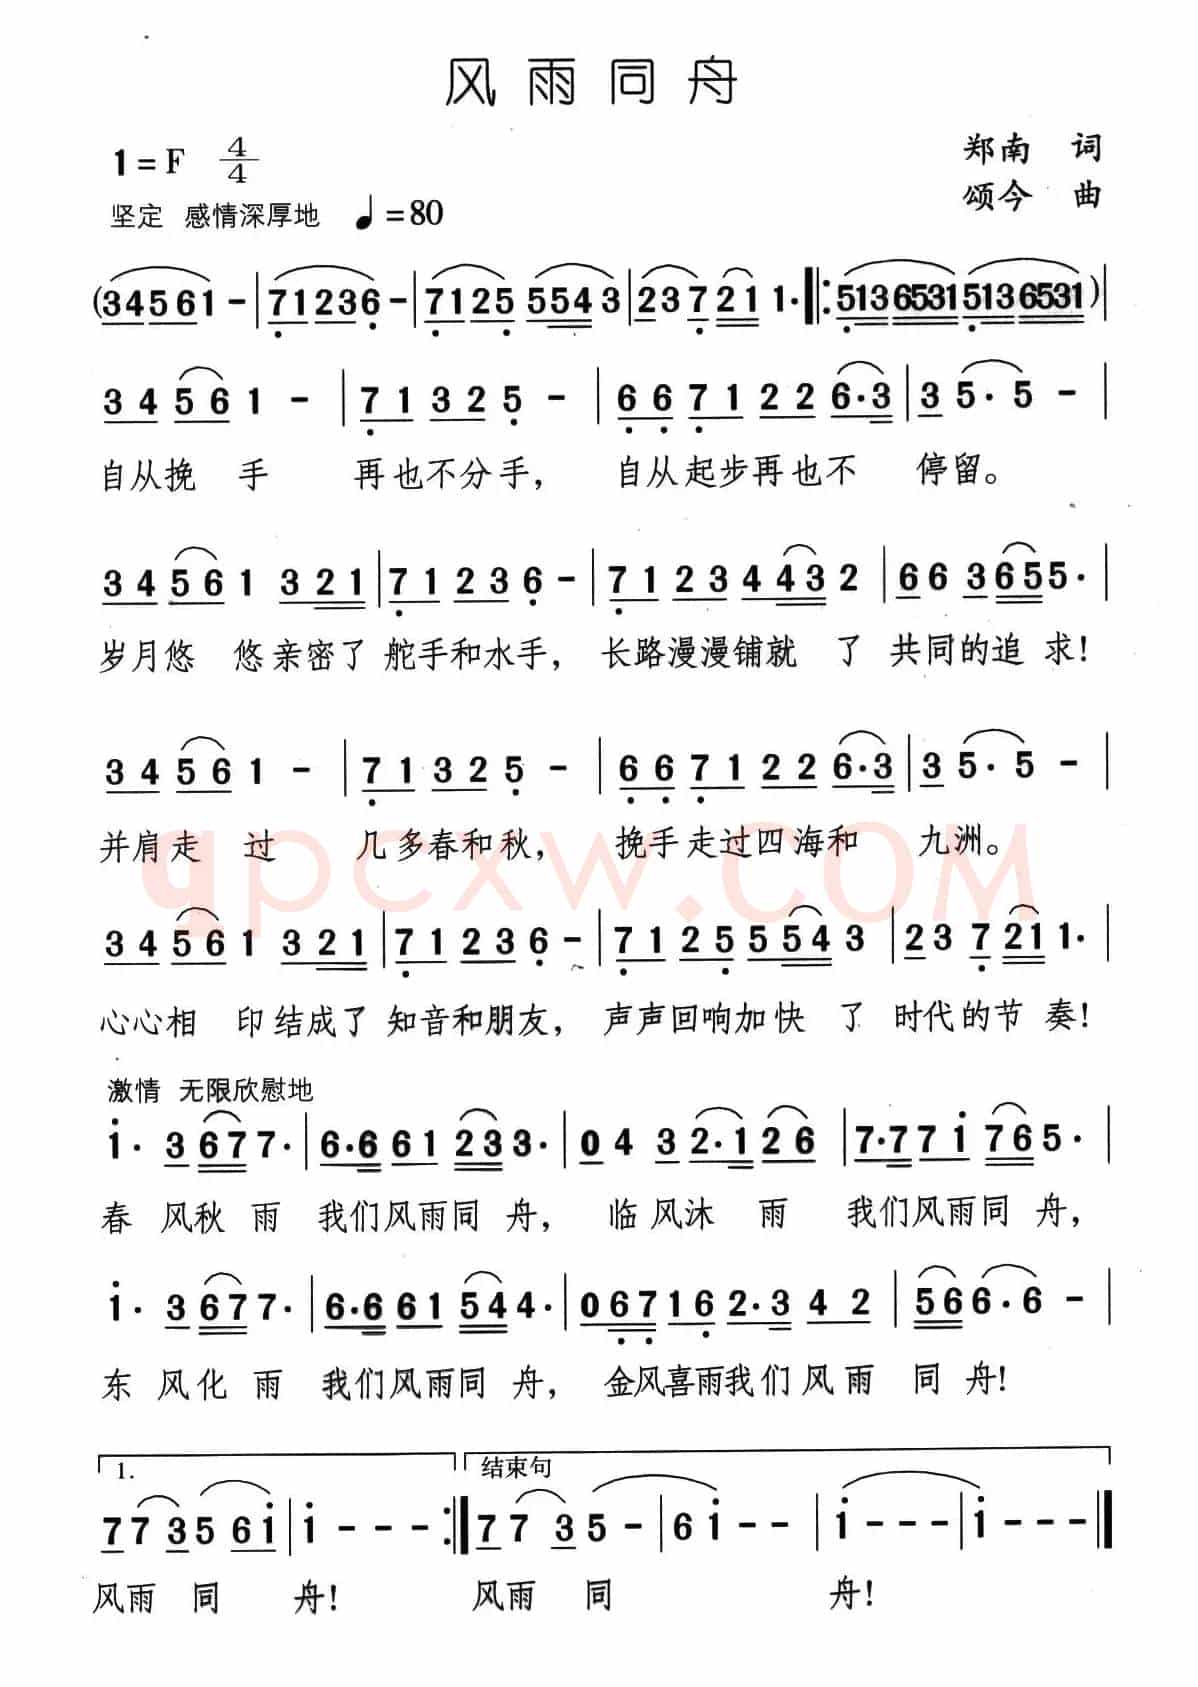 风雨同舟
1=F 4/4 郑南 词
颂今 曲
坚定 感情深厚地 ♩=80
(34561-|71236-|7125 5543|237211·‖:5136531513 6531)|
34561-|71325-|6671226·3|35·5-|
自从挽手 再也不分手，自从起步再也不停留。
34561321|71236-|71234432|663655·|
岁月悠悠亲密了舵手和水手，长路漫漫铺就了共同的追求！
34561-|71325-|6671226·3|35·5-|
并肩走过 几多春和秋，挽手走过四海和九洲。
qpcxw.COM
34561321|71236-|71255543|237211·|
心心相印结成了知音和朋友，声声回响加快了时代的节奏！
激情 无限欣慰地
1·3677·|6·661233·|0432·126|7·771765·|
春风秋雨我们风雨同舟，临风沐雨我们风雨同舟，
1·3677·|6·661544·|067162·342|566·6-|
东风化雨我们风雨同舟，金风喜雨我们风雨同舟！
1. 结束句
773561|1---:‖7735-|61--|1---|1---‖
风雨同舟！ 风雨同舟！